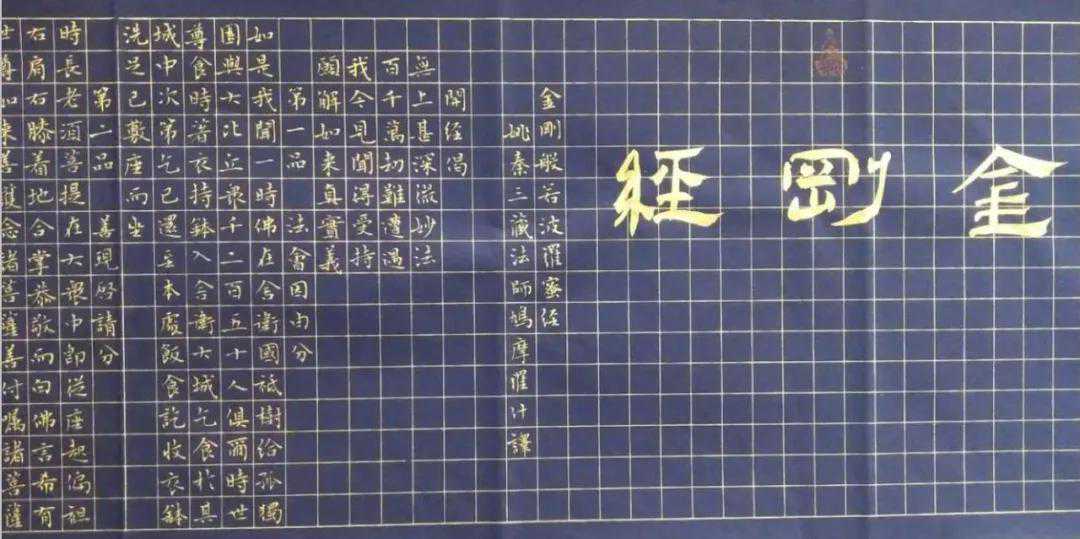 金剛經
金剛般若波羅蜜經
姚秦三藏法師鳩摩羅什譯
開經偈
無上甚深微妙法
百千萬劫難遭遇
我今見聞得受持
願解如來真實義
第一品 法會因由分
如是我聞一時佛在舍衛國祇樹給孤獨
園與大比丘眾千二百五十人俱爾時世
尊食時著衣持鉢入舍衛大城乞食於其
城中次第乞已還至本處飯食訖收衣鉢
洗足已敷座而坐
第二品 善現啓請分
時長老須菩提在大眾中即從座起偏袒
右肩右膝着地合掌恭敬而向佛言希有
世尊如來善護念諸菩薩善付囑諸菩薩